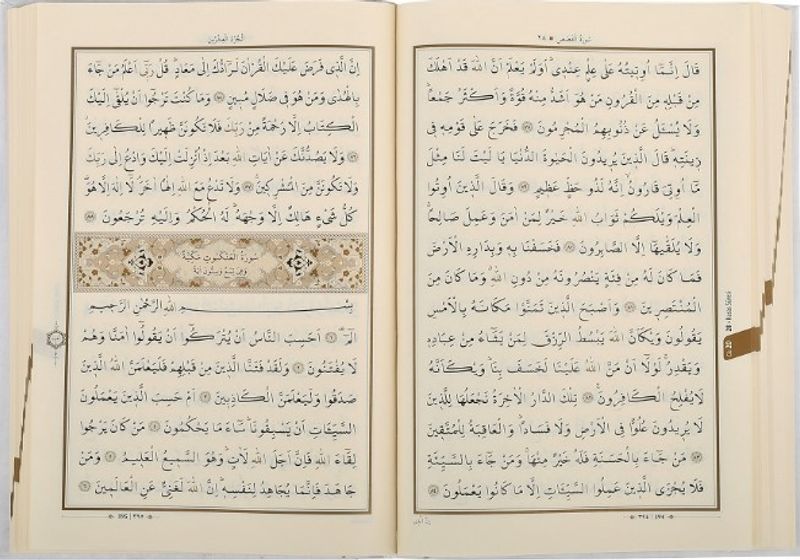 سورة القصص ٢٨
قَالَ اِنَّمَٓا اُو۫ت۪يتُهُ عَلٰى عِلْمٍ عِنْد۪ي اَوَلَمْ يَعْلَمْ اَنَّ اللّٰهَ قَدْ اَهْلَكَ
مِنْ قَبْلِه۪ مِنَ الْقُرُونِ مَنْ هُوَ اَشَدُّ مِنْهُ قُوَّةً وَاَكْثَرُ جَمْعاً
وَلَا يُسْـَٔلُ عَنْ ذُنُوبِهِمُ الْمُجْرِمُونَ ﴿٧٨﴾ فَخَرَجَ عَلٰى قَوْمِه۪ ف۪ي
ز۪ينَتِه۪ قَالَ الَّذ۪ينَ يُر۪يدُونَ الْحَيٰوةَ الدُّنْيَا يَا لَيْتَ لَنَا مِثْلَ
مَٓا اُو۫تِيَ قَارُونُ اِنَّهُ لَذُو حَظٍّ عَظ۪يمٍ ﴿٧٩﴾ وَقَالَ الَّذ۪ينَ اُو۫تُوا
الْعِلْمَ وَيْلَكُمْ ثَوَابُ اللّٰهِ خَيْرٌ لِمَنْ اٰمَنَ وَعَمِلَ صَالِحاً
وَلَا يُلَقّٰيهَٓا اِلَّا الصَّابِرُونَ ﴿٨٠﴾ فَخَسَفْنَا بِه۪ وَبِدَارِهِ الْاَرْضَ
فَمَا كَانَ لَهُ مِنْ فِئَةٍ يَنْصُرُونَهُ مِنْ دُونِ اللّٰهِ وَمَا كَانَ مِنَ
الْمُنْتَصِر۪ينَ ﴿٨١﴾ وَاَصْبَحَ الَّذ۪ينَ تَمَنَّوْا مَكَانَهُ بِالْاَمْسِ
يَقُولُونَ وَيْكَاَنَّ اللّٰهَ يَبْسُطُ الرِّزْقَ لِمَنْ يَشَٓاءُ مِنْ عِبَادِه۪
وَيَقْدِرُ لَوْلَٓا اَنْ مَنَّ اللّٰهُ عَلَيْنَا لَخَسَفَ بِنَا وَيْكَاَنَّهُ
لَا يُفْلِحُ الْكَافِرُونَ ﴿٨٢﴾ تِلْكَ الدَّارُ الْاٰخِرَةُ نَجْعَلُهَا لِلَّذ۪ينَ
لَا يُر۪يدُونَ عُلُواًّ فِي الْاَرْضِ وَلَا فَسَاداً وَالْعَاقِبَةُ لِلْمُتَّق۪ينَ
﴿٨٣﴾ مَنْ جَٓاءَ بِالْحَسَنَةِ فَلَهُ خَيْرٌ مِنْهَا وَمَنْ جَٓاءَ بِالسَّيِّئَةِ
فَلَا يُجْزَى الَّذ۪ينَ عَمِلُوا السَّيِّـَٔاتِ اِلَّا مَا كَانُوا يَعْمَلُونَ ﴿٨٤﴾
الجزء العشرين
اِنَّ الَّذ۪ي فَرَضَ عَلَيْكَ الْقُرْاٰنَ لَرَٓادُّكَ اِلٰى مَعَادٍ قُلْ رَبّ۪ٓي اَعْلَمُ مَنْ جَٓاءَ
بِالْهُدٰى وَمَنْ هُوَ ف۪ي ضَلَالٍ مُب۪ينٍ ﴿٨٥﴾ وَمَا كُنْتَ تَرْجُٓوا اَنْ يُلْقٰٓى اِلَيْكَ
الْكِتَابُ اِلَّا رَحْمَةً مِنْ رَبِّكَ فَلَا تَكُونَنَّ ظَه۪يراً لِلْكَافِر۪ينَ
﴿٨٦﴾ وَلَا يَصُدُّنَّكَ عَنْ اٰيَاتِ اللّٰهِ بَعْدَ اِذْ اُنْزِلَتْ اِلَيْكَ وَادْعُ اِلٰى رَبِّكَ
وَلَا تَكُونَنَّ مِنَ الْمُشْرِك۪ينَ ﴿٨٧﴾ وَلَا تَدْعُ مَعَ اللّٰهِ اِلٰهاً اٰخَرَ لَٓا اِلٰهَ اِلَّا هُوَ
كُلُّ شَيْءٍ هَالِكٌ اِلَّا وَجْهَهُ لَهُ الْحُكْمُ وَاِلَيْهِ تُرْجَعُونَ ﴿٨٨﴾
سُورَةُ الْعَنْكَبُوتِ مَكِّيَّةٌ
وَهِيَ تِسْعٌ وَسِتُّونَ اٰيَةً
بِسْمِ اللّٰهِ الرَّحْمٰنِ الرَّح۪يمِ
الٓمٓ ﴿١﴾ اَحَسِبَ النَّاسُ اَنْ يُتْرَكُٓوا اَنْ يَقُولُٓوا اٰمَنَّا وَهُمْ
لَا يُفْتَنُونَ ﴿٢﴾ وَلَقَدْ فَتَنَّا الَّذ۪ينَ مِنْ قَبْلِهِمْ فَلَيَعْلَمَنَّ اللّٰهُ الَّذ۪ينَ
صَدَقُوا وَلَيَعْلَمَنَّ الْكَاذِب۪ينَ ﴿٣﴾ اَمْ حَسِبَ الَّذ۪ينَ يَعْمَلُونَ
السَّيِّـَٔاتِ اَنْ يَسْبِقُونَا سَٓاءَ مَا يَحْكُمُونَ ﴿٤﴾ مَنْ كَانَ يَرْجُوا
لِقَٓاءَ اللّٰهِ فَاِنَّ اَجَلَ اللّٰهِ لَاٰتٍ وَهُوَ السَّم۪يعُ الْعَل۪يمُ ﴿٥﴾ وَمَنْ
جَاهَدَ فَاِنَّمَا يُجَاهِدُ لِنَفْسِه۪ اِنَّ اللّٰهَ لَغَنِيٌّ عَنِ الْعَالَم۪ينَ ﴿٦﴾